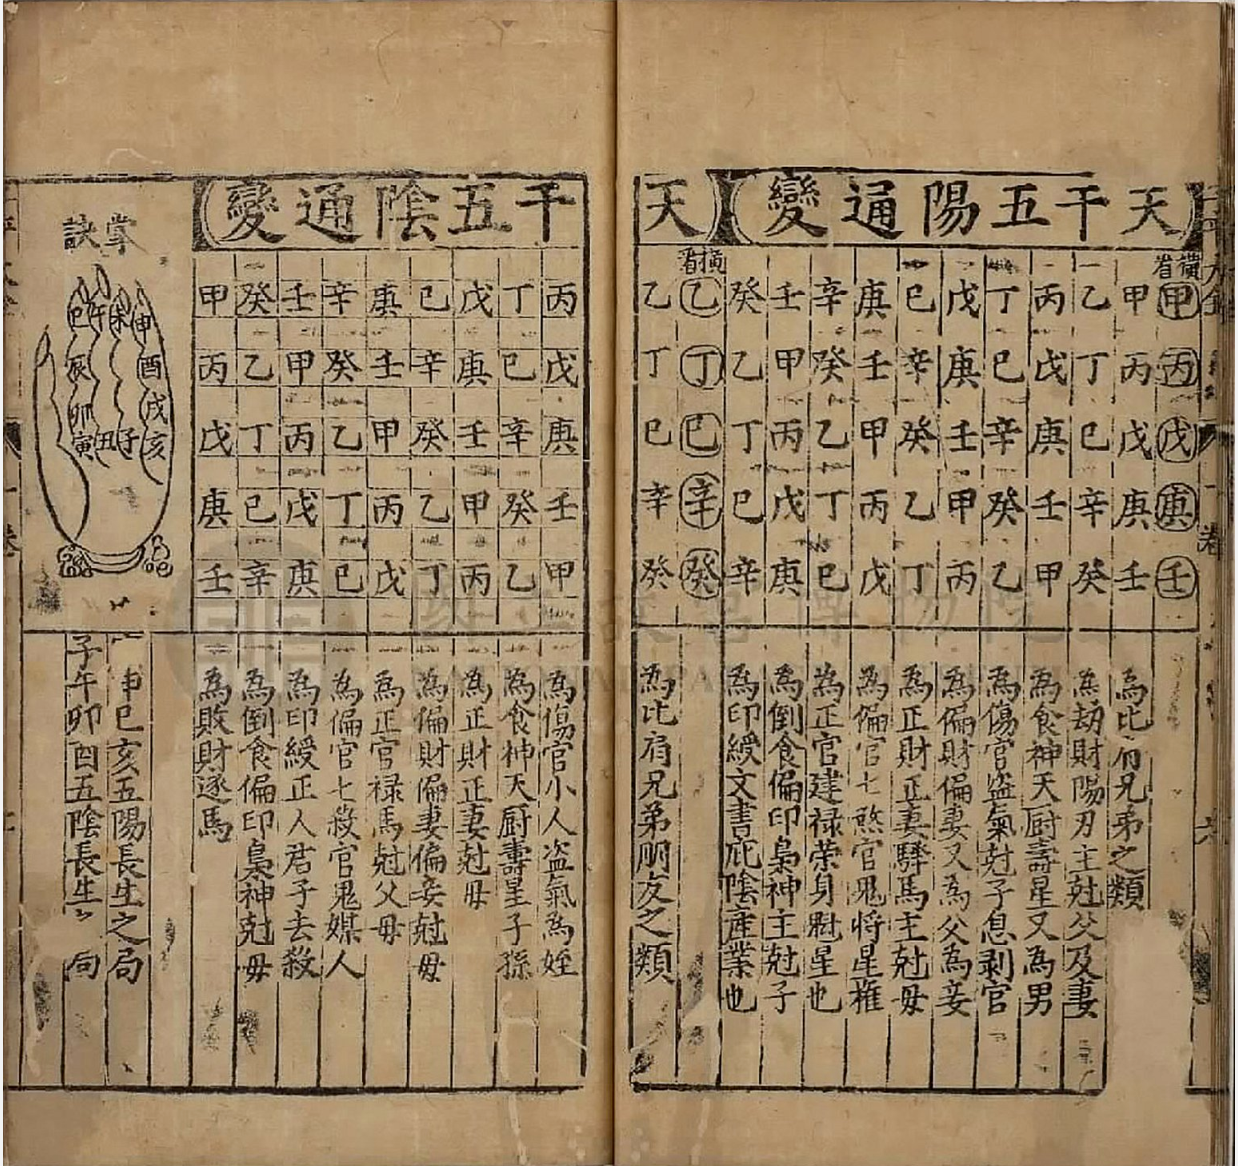 天干五陽通變
橫看 甲 丙 戊 庚 壬
甲 丙 戊 庚 壬 為比肩兄弟之類
乙 丁 巳 辛 癸 為劫財陽刃主尅父及妻
丙 戊 庚 壬 甲 為食神天厨壽星又為男
丁 巳 辛 癸 乙 為傷官盗氣尅子息剥官
戊 庚 壬 甲 丙 為偏財偏妻又為父為妾
巳 辛 癸 乙 丁 為正財正妻驛馬主尅母
庚 壬 甲 丙 戊 為偏官七煞官鬼將星權
辛 癸 乙 丁 巳 為正官建禄荣身慰星也
壬 甲 丙 戊 庚 為倒食偏印梟神主尅子
癸 乙 丁 巳 辛 為印綬文書庇陰産業也
天干五陰通變
橫看 乙 丁 巳 辛 癸
乙 丁 巳 辛 癸 為比肩兄弟朋友之類
丙 戊 庚 壬 甲 為傷官小人盗氣為姪
丁 巳 辛 癸 乙 為食神天厨壽星子孫
戊 庚 壬 甲 丙 為正財正妻尅母
巳 辛 癸 乙 丁 為偏財偏妻偏妾尅母
庚 壬 甲 丙 戊 為正官禄馬尅父母
辛 癸 乙 丁 巳 為偏官七殺官鬼媒人
壬 甲 丙 戊 庚 為印綬正人君子去殺
癸 乙 丁 巳 辛 為倒食偏印梟神尅母
甲 丙 戊 庚 壬 為敗財逐馬
掌訣
申酉戌亥
未子
午丑
巳辰卯寅
申巳亥五陽長生之局
子午卯酉五陰長生局